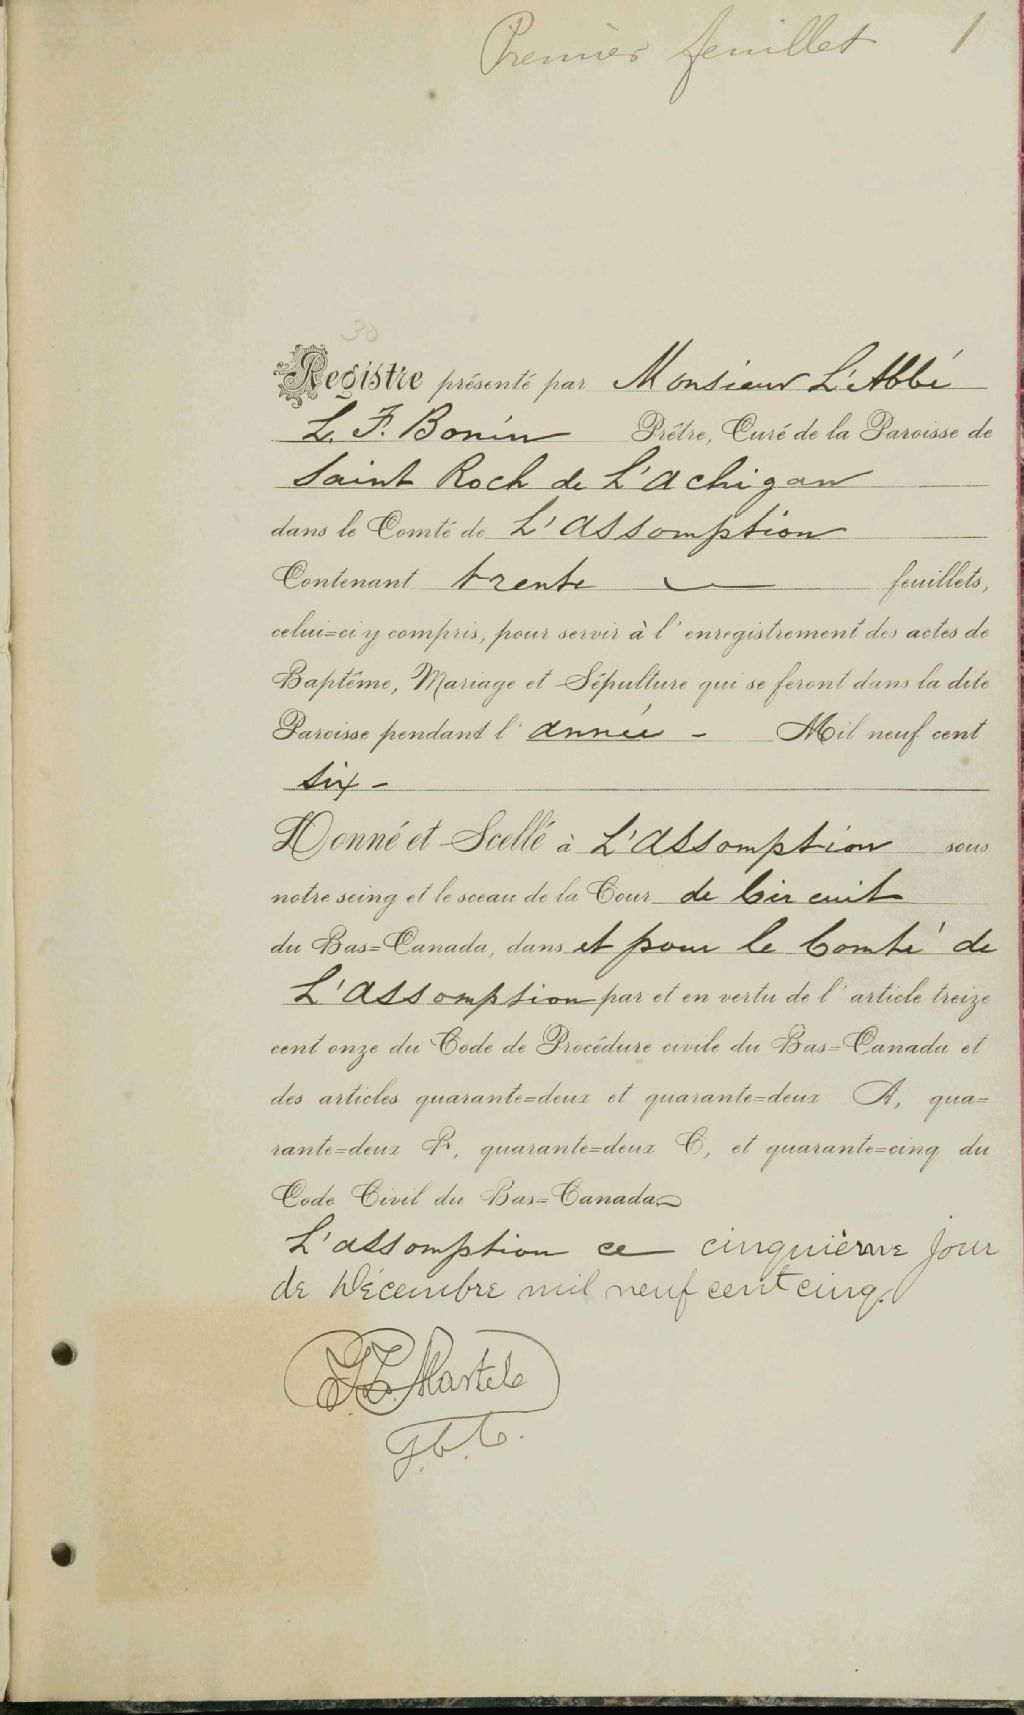 Premier feuillet 1
30
Registre présenté par Monsieur L'Abbé
L. F. Bonin Prêtre, Curé de la Paroisse de
Saint Roch de L'Achigan
dans le Comté de L'Assomption
Contenant trente feuillets,
celui=ci y compris, pour servir à l'enregistrement des actes de
Baptême, Mariage et Sépulture qui se feront dans la dite
Paroisse pendant l'année - Mil neuf cent
six -
Donné et Scellé à L'Assomption sous
notre seing et le sceau de la Cour de Circuit
du Bas=Canada, dans et pour le Comté de
L'Assomption par et en vertu de l'article treize
cent onze du Code de Procédure civile du Bas=Canada et
des articles quarante=deux et quarante=deux A, qua=
rante=deux B, quarante=deux C, et quarante=cinq du
Code Civil du Bas=Canada
L'assomption ce cinquième jour
de Décembre mil neuf cent cinq.
Martel
G.C.C.